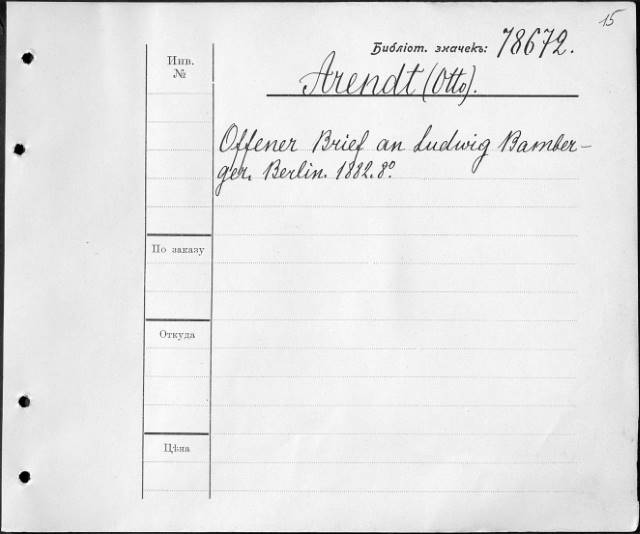 15
Библіот. значекъ: 78672.
Инв.
№
Arendt (Otto).
Offener Brief an Ludwig Bamber-
ger. Berlin. 1882. 8°.
По заказу
Откуда
Цѣна